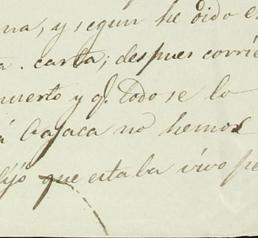 na, y segun he oido e
a . carta; despues corrie
muerto y q.e todo se lo
a Oajaca no hemos
dijo que estaba vivo pe